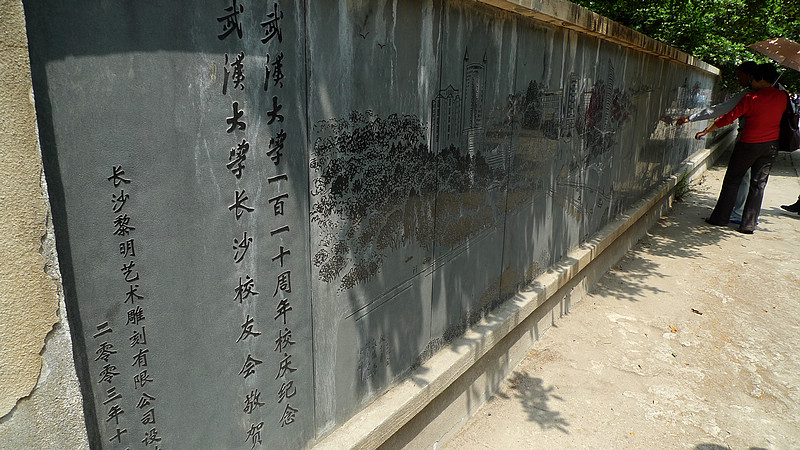 武漢大学一百一十周年校庆纪念
武漢大学长沙校友会敬贺
长沙黎明艺术雕刻有限公司设
二零零三年十